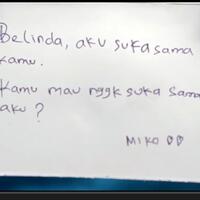 Belinda, aku suka sama
kamu.
Kamu mau nggk suka sama
aku?
MIKO